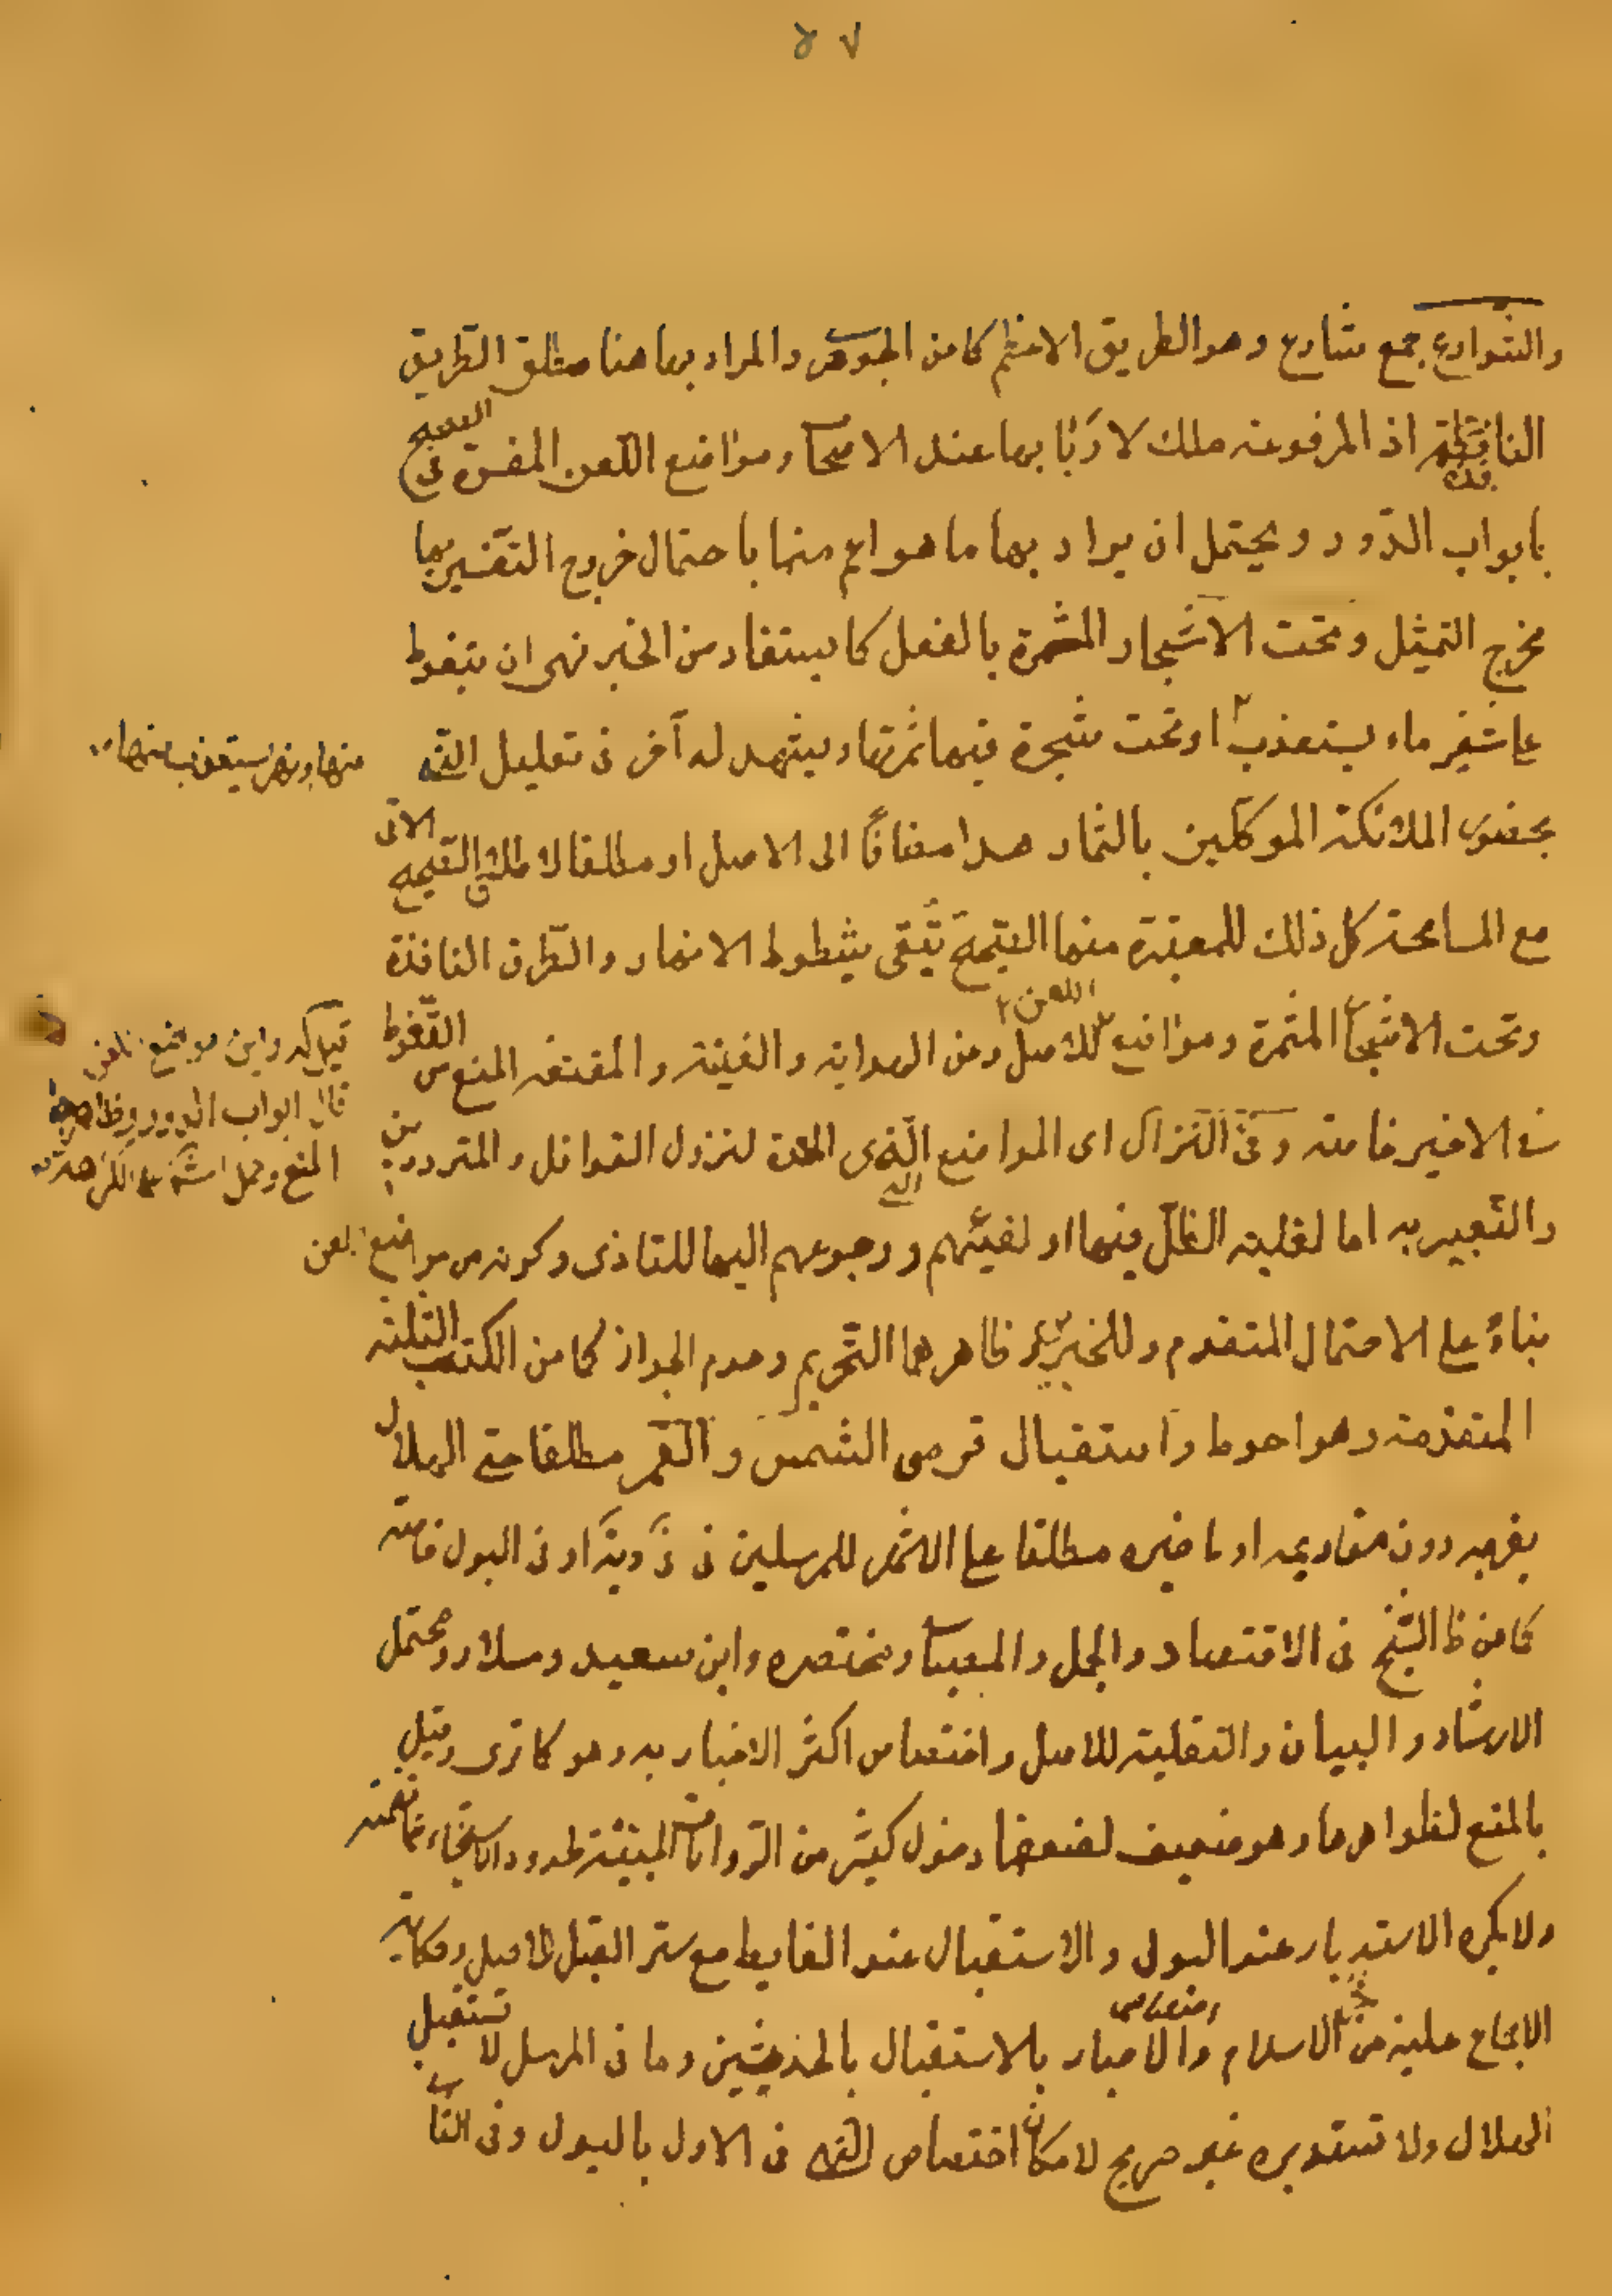 ٥٧
والشوارع جمع شارع وهو الطريق الاعظم كما عن الجوهري والمراد بها هنا مطلق الطريق
النافذة اذ المرفوعة ملك لاربابها عند الاصحاب ومواضع اللعن المفسرة في الصحيح
بابواب الدور ويحتمل ان يراد بها ما هو اعم منها باحتمال خروج التفسير بها
مخرج التمثيل وتحت الاشجار المثمرة بالفعل كما يستفاد من الخبر نهى ان يتغوط
على شفير ماء يستعذب او تحت شجرة فيها ثمرتها ويشهد له آخر في تعليل النهي
منها او نهر يستعذب منها
بحضور الملائكة الموكلين بالثمار هذا مضافا الى الاصل او مطلقا لاطلاق الصحيح الآتي
مع المسامحة كل ذلك للمعتبرة منها الصحيح تتقى شطوط الانهار والطرق النافذة
وتحت الاشجار المثمرة ومواضع اللعن للاصل وعن الهداية والغنية والمقنعة المنع من التغوط
قيل له واين مواضع اللعن
قال ابواب الدور وظاهرها
المنع وحمل على الكراهة
في الاخير خاصة وفيء النزال اي المواضع المعدة لنزول القوافل والمترددين
والتعبير به اما لغلبة الظل فيها او لفيئهم ورجوعهم اليها للتاذي وكونه من مواضع اللعن
بناءً على الاحتمال المتقدم وللخبرين ظاهرهما التحريم وعدم الجواز كما عن الكتب الثلثة
المتقدمة وهو احوط واستقبال قرصي الشمس والقمر مطلقا حتى الهلال
بفرجه دون مقاديمه او ما غيره مطلقا على الاشهر للمرسلين في او في البول خاصة
كما عن ظ الشيخ في الاقتصاد والجمل والمصباح ومختصره وابن سعيد وسلار ومحتمل
الارشاد والبيان والنفلية للاصل واختصاص اكثر الاخبار به وهو كما ترى وقيل
بالمنع لظواهرها وهو ضعيف لضعفها وخلو كثير من الروايات المبينة لحدود الاستنجاء عنه
ولا يكره الاستدبار عند البول والاستقبال عند الغايط مع ستر القبل للاصل وحكاية
الاجماع عليه عن فخر الاسلام واختصاص الاخبار بالاستقبال بالحدثين وما في المرسل لا تستقبل
الهلال ولا تستدبره غير صريح لامكان اختصاص النهي في الاول بالبول وفي الثاني